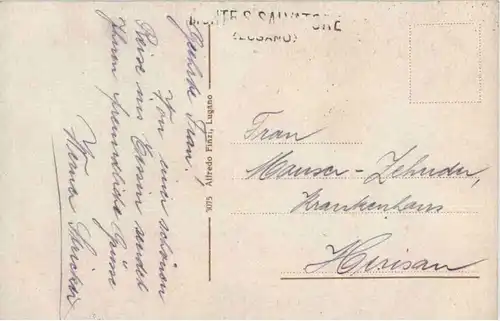 MONTE S. SALVATORE
(LUGANO)
Geehrte Frau!
Von einer schönen
Reise ins Tessin sendet
Ihnen freundliche Grüsse
Werner
3075 Alfredo Finzi, Lugano
Frau
Manser-Zehnder,
Krankenhaus
Herisau